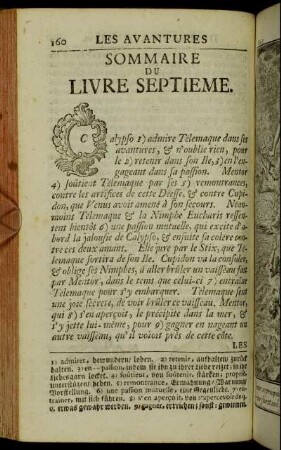 160 LES AVANTURES
SOMMAIRE
DU
LIVRE SEPTIEME.
Calypso 1) admire Télemaque dans ses
avantures, & n'oublie rien, pour
le 2) retenir dans son Ile, 3) en l'en-
gageant dans sa passion. Mentor
4) soûtient Télemaque par ses 5) remontrances,
contre les artifices de cette Déesse, & contre Cupi-
don, que Venus avoit amené à son secours. Néan-
moins Télemaque & la Nimphe Eucharis ressen-
tent bientôt 6) une passion mutuelle, qui excite d'a-
bord la jalousie de Calypso, & ensuite sa colere con-
tre ces deux amans. Elle jure par le Stix, que Té-
lemaque sortira de son Ile. Cupidon va la consoler,
& oblige ses Nimphes, à aller brûler un vaisseau fait
par Mentor, dans le tems que celui-ci 7) entraîne
Télemaque pour s'y embarquer. Télemaque sent
une joie secrete, de voir brûler ce vaisseau. Mentor,
qui 8) s'en aperçoit, le précipite dans la mer, &
s'y jette lui-même, pour 9) gagner en nageant un
autre vaisseau, qu'il voioit près de cette côte.
LES
1) admirer, bewundern, loben. 2) retenir, aufhalten, zurück
halten. 3) en -- passion, indem sie ihn zu ihrer Liebe reizet, in die
4) soûtenir, von soûtenir, stärken;
unterstützen, heben. 5) remontrance, Ermahnung, Warnung
Vorstellung. 6) une passion mutuelle, eine Gegenliebe. 7) en-
trainer, mit sich führen. 8) s'en aperçoit, von s'apercevoir,
etwas gewahr werden. 9) gagner, erreichen; sonst: gewinnen.